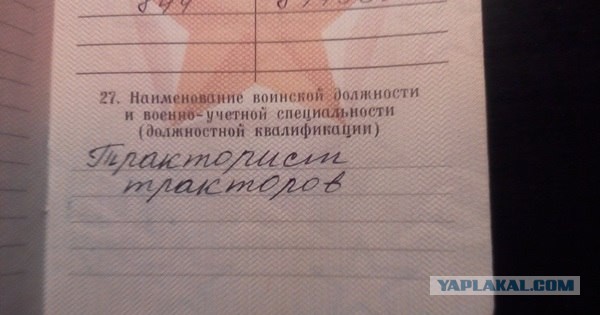 27. Наименование воинской должности
и военно-учетной специальности
(должностной квалификации)
Тракторист
тракторов
YAPLAKAL.COM